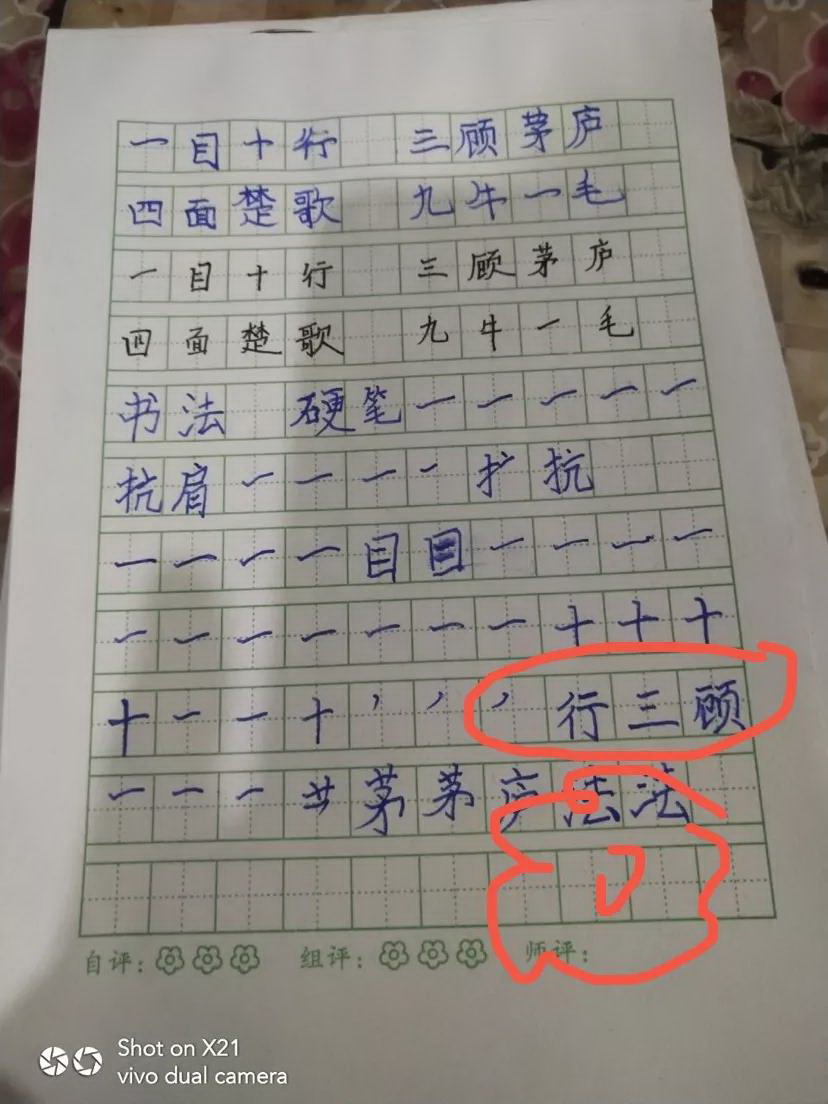 一目十行 三顾茅庐
四面楚歌 九牛一毛
一目十行 三顾茅庐
四面楚歌 九牛一毛
书法 硬笔一一一一一
抗肩一一一一扩抗
一一一一目目一一一一
一一一一一一一十十十
十一一十丿丿丿行三顾
一一一艹茅茅庐法法
自评: 组评: 师评:
Shot on X21
vivo dual camera